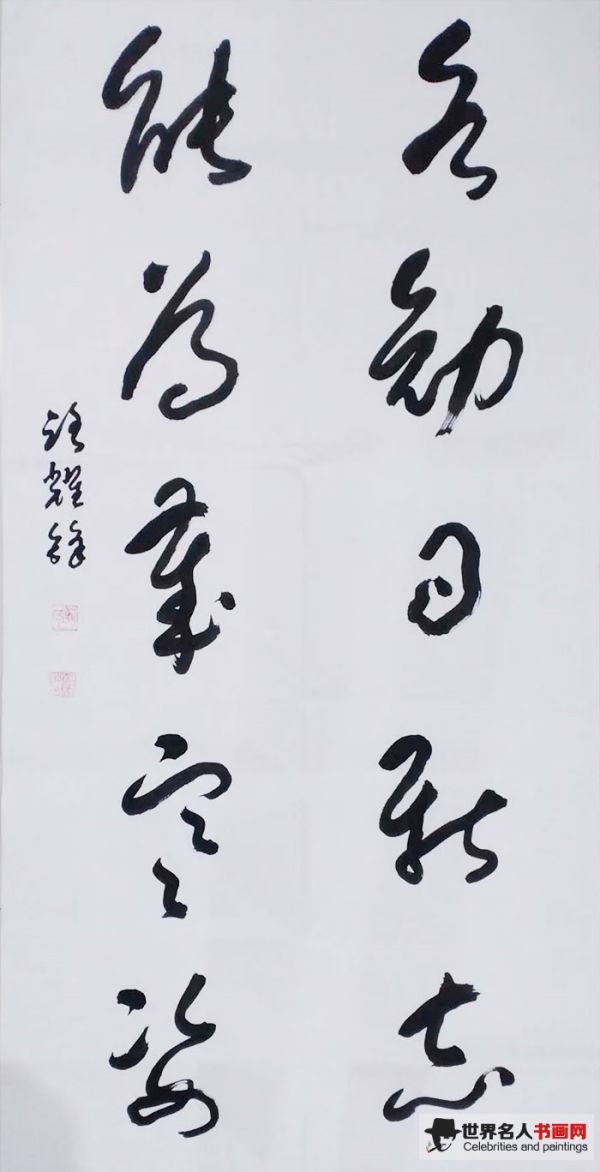 各勉日新志
能為歲寒姿
耀鋒
世界名人书画网
Celebrities and paintings